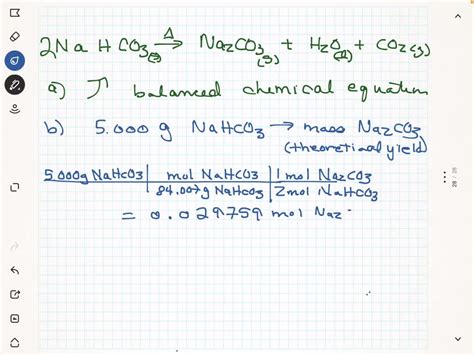 2NaHCO3(s) →Δ Na2CO3(s) + H2O(l) + CO2(g)
a) ↗ balanced chemical equation
b) 5.000 g NaHCO3 → mass Na2CO3
(theoretical yield)
5.000g NaHCO3 | mol NaHCO3 | 1 mol Na2CO3
84.007g NaHCO3 | 2 mol NaHCO3
= 0.029759 mol Na2
28 / 28